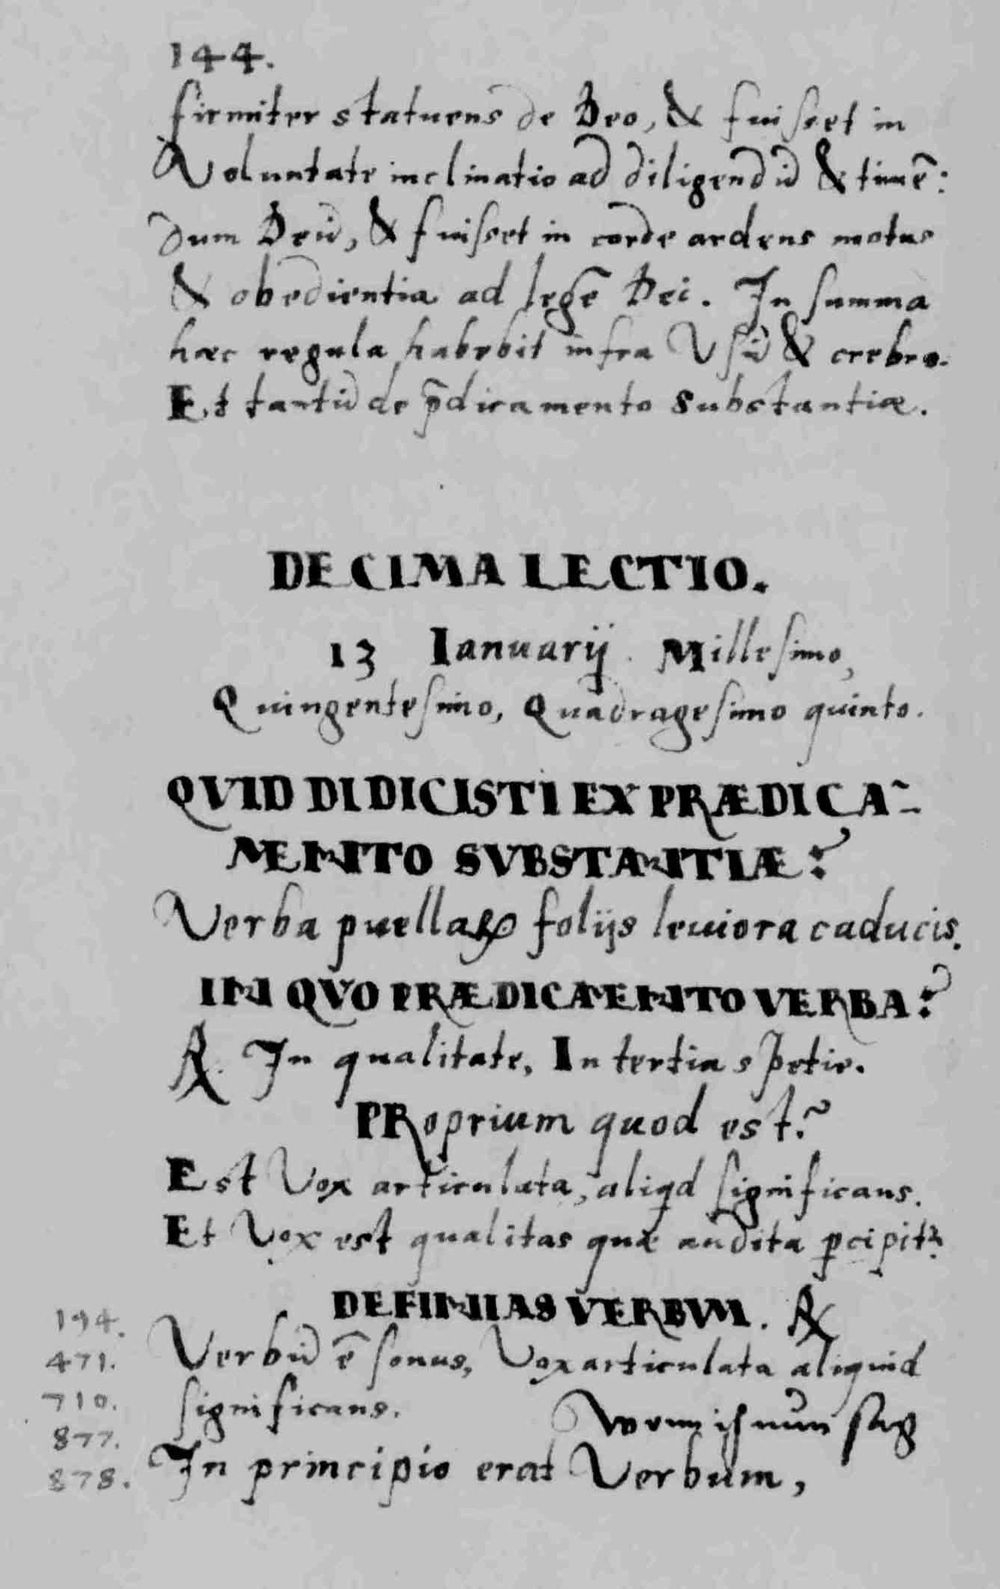 144.
firmiter statuens de Deo, & fuisset in
Voluntate inclinatio ad diligendū & timē:
dum Deū, & fuisset in corde ardens motus
& obedientia ad legē Dei. In summa
hæc regula habebit infra Usū & crebro.
Et tantū de p̄dicamento substantiæ.
DECIMA LECTIO.
13 Ianuarij Millesimo,
Quingentesimo, Quadragesimo quinto.
QVID DIDICISTI EX PRÆDICA-
MENTO SVBSTANTIÆ?
Verba puellaꝝ folijs leuiora caducis.
IN QVO PRÆDICAMENTO VERBA?
℟. In qualitate, In tertia spetie.
PRoprium quod est?
Est Vox articulata, aliqd significans.
Et Vox est qualitas quæ audita ꝑcipitr.
DEFINIAS VERBVM. ℟
194.
Verbū ē sonus, Vox articulata aliquid
471.
significans. Wenn ich nun sag
710.
877.
In principio erat Verbum,
878.